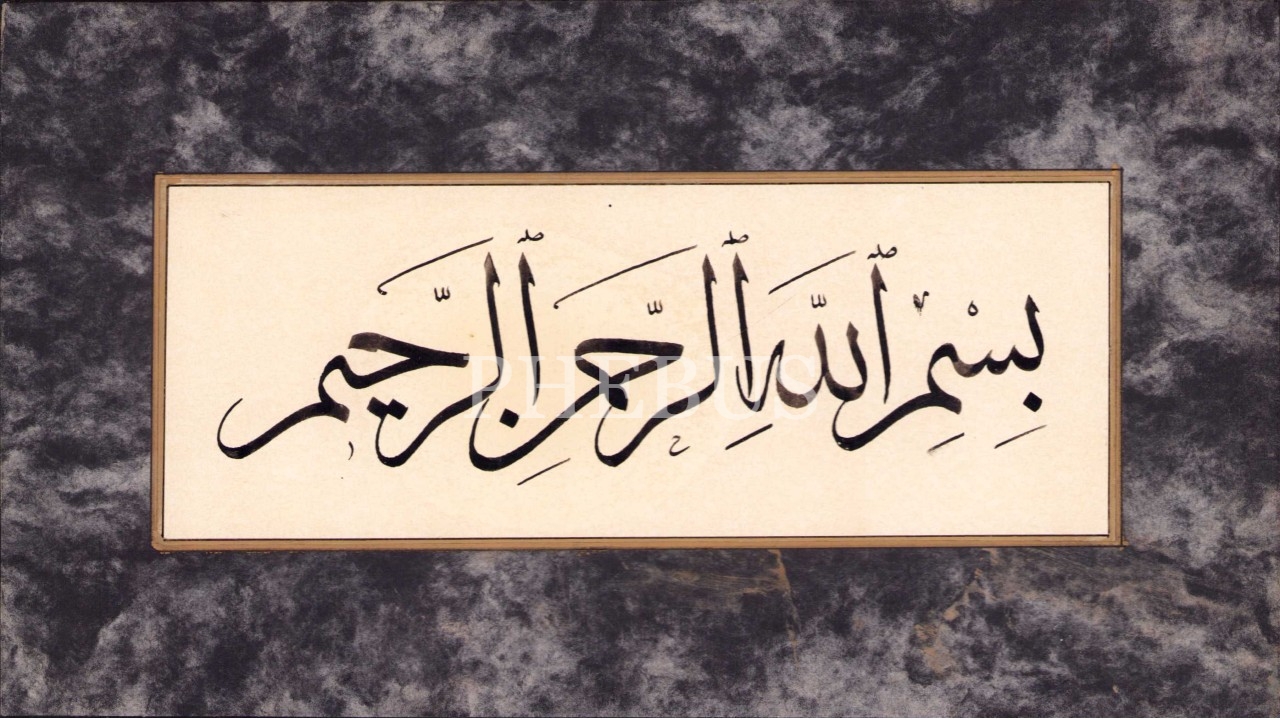 بِسْمِ ٱللَّهِ ٱلرَّحْمَنِ ٱلرَّحِيمِ
PHEBUS